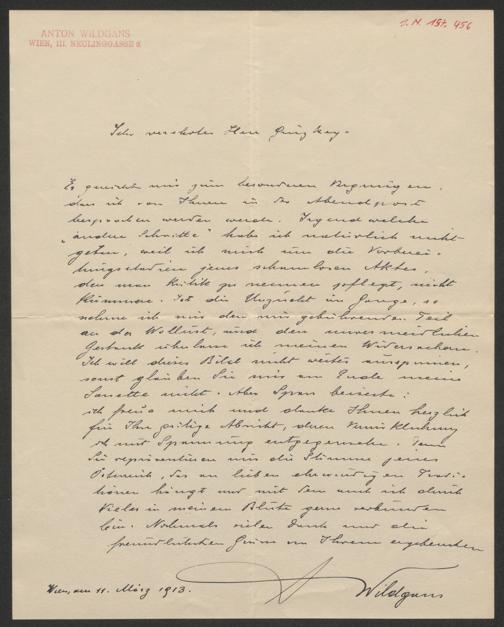 ANTON WILDGANS
WIEN, III. NEULINGGASSE
I. N. 157.456
Sehr verehrter Herr Ginzkey.
Es gereicht mir zum besonderen Vergnügen,
dass ich von Ihnen in der Abendpost
besprochen werden werde. Irgend welche
"andere Schritte" habe ich natürlich nicht
getan, weil ich mich um die Vorberei-
tungsstadien jenes schamlosen Aktes,
den man Kritik zu nennen pflegt, nicht
kümmere. Ist die Unzucht im Gange, so
nehme ich mir den mir gebührenden Teil
an der Wollust, und den unvermeidlichen
Gestank überlasse ich meinen Widersachern.
Ich will dieses Bild nicht weiter ausspinnen,
sonst glauben Sie mir am Ende meine
Sonette nicht. Aber Spass beiseite:
ich freue mich und danke Ihnen herzlich
für Ihre gütige Absicht, deren Verwirklichung
ich mit Spannung entgegensehe. Denn
Sie repräsentieren mir die Stimme jenes
Österreich, das an lieben ehrwürdigen Tradi-
tionen hängt und mit dem auch ich durch
Vieles in meinem Blute gern verbunden
bin. Nochmals vielen Dank und die
freundlichsten Grüsse von Ihrem ergebensten
Wildgans
Wien, am 11. März 1913.